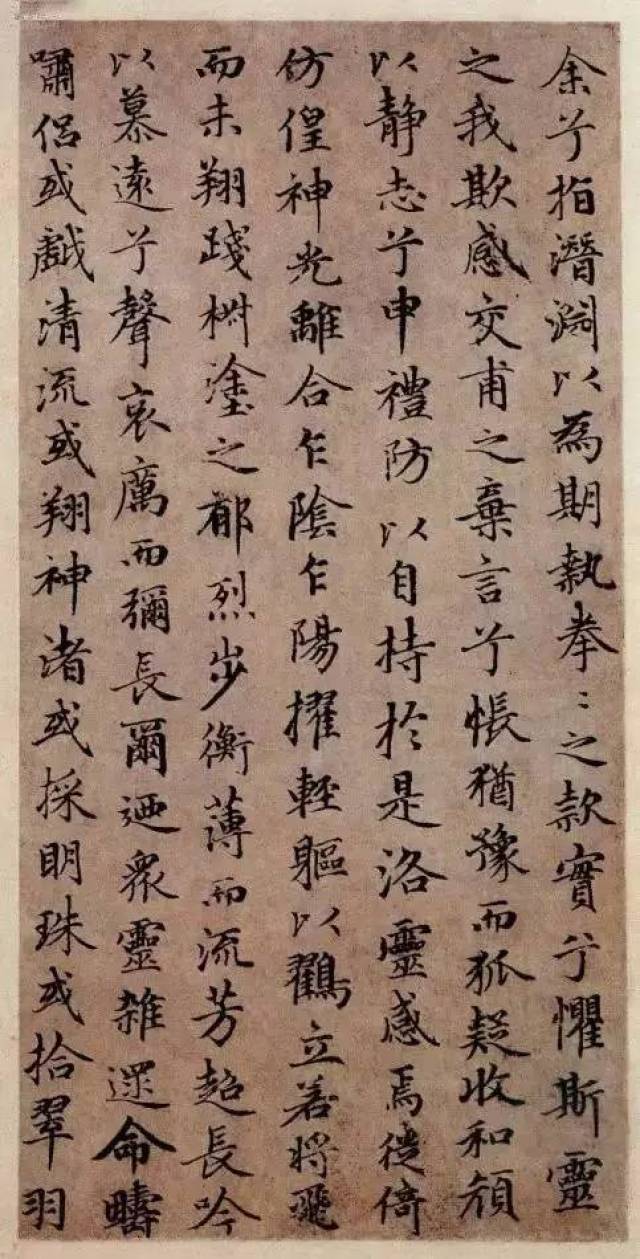 余兮指潛淵以為期執拳〻之款實兮懼斯靈
之我欺感交甫之棄言兮悵猶豫而狐疑收和顏
以静志兮申禮防以自持於是洛靈感焉徙倚
仿偟神光離合乍陰乍陽擢輕軀以鸖立若將飛
而未翔踐椒塗之郁烈步衡薄而流芳超長吟
以慕遠兮聲哀厲而彌長爾迺衆靈雜遝命疇
嘯侶或戲清流或翔神渚或採明珠或拾翠羽